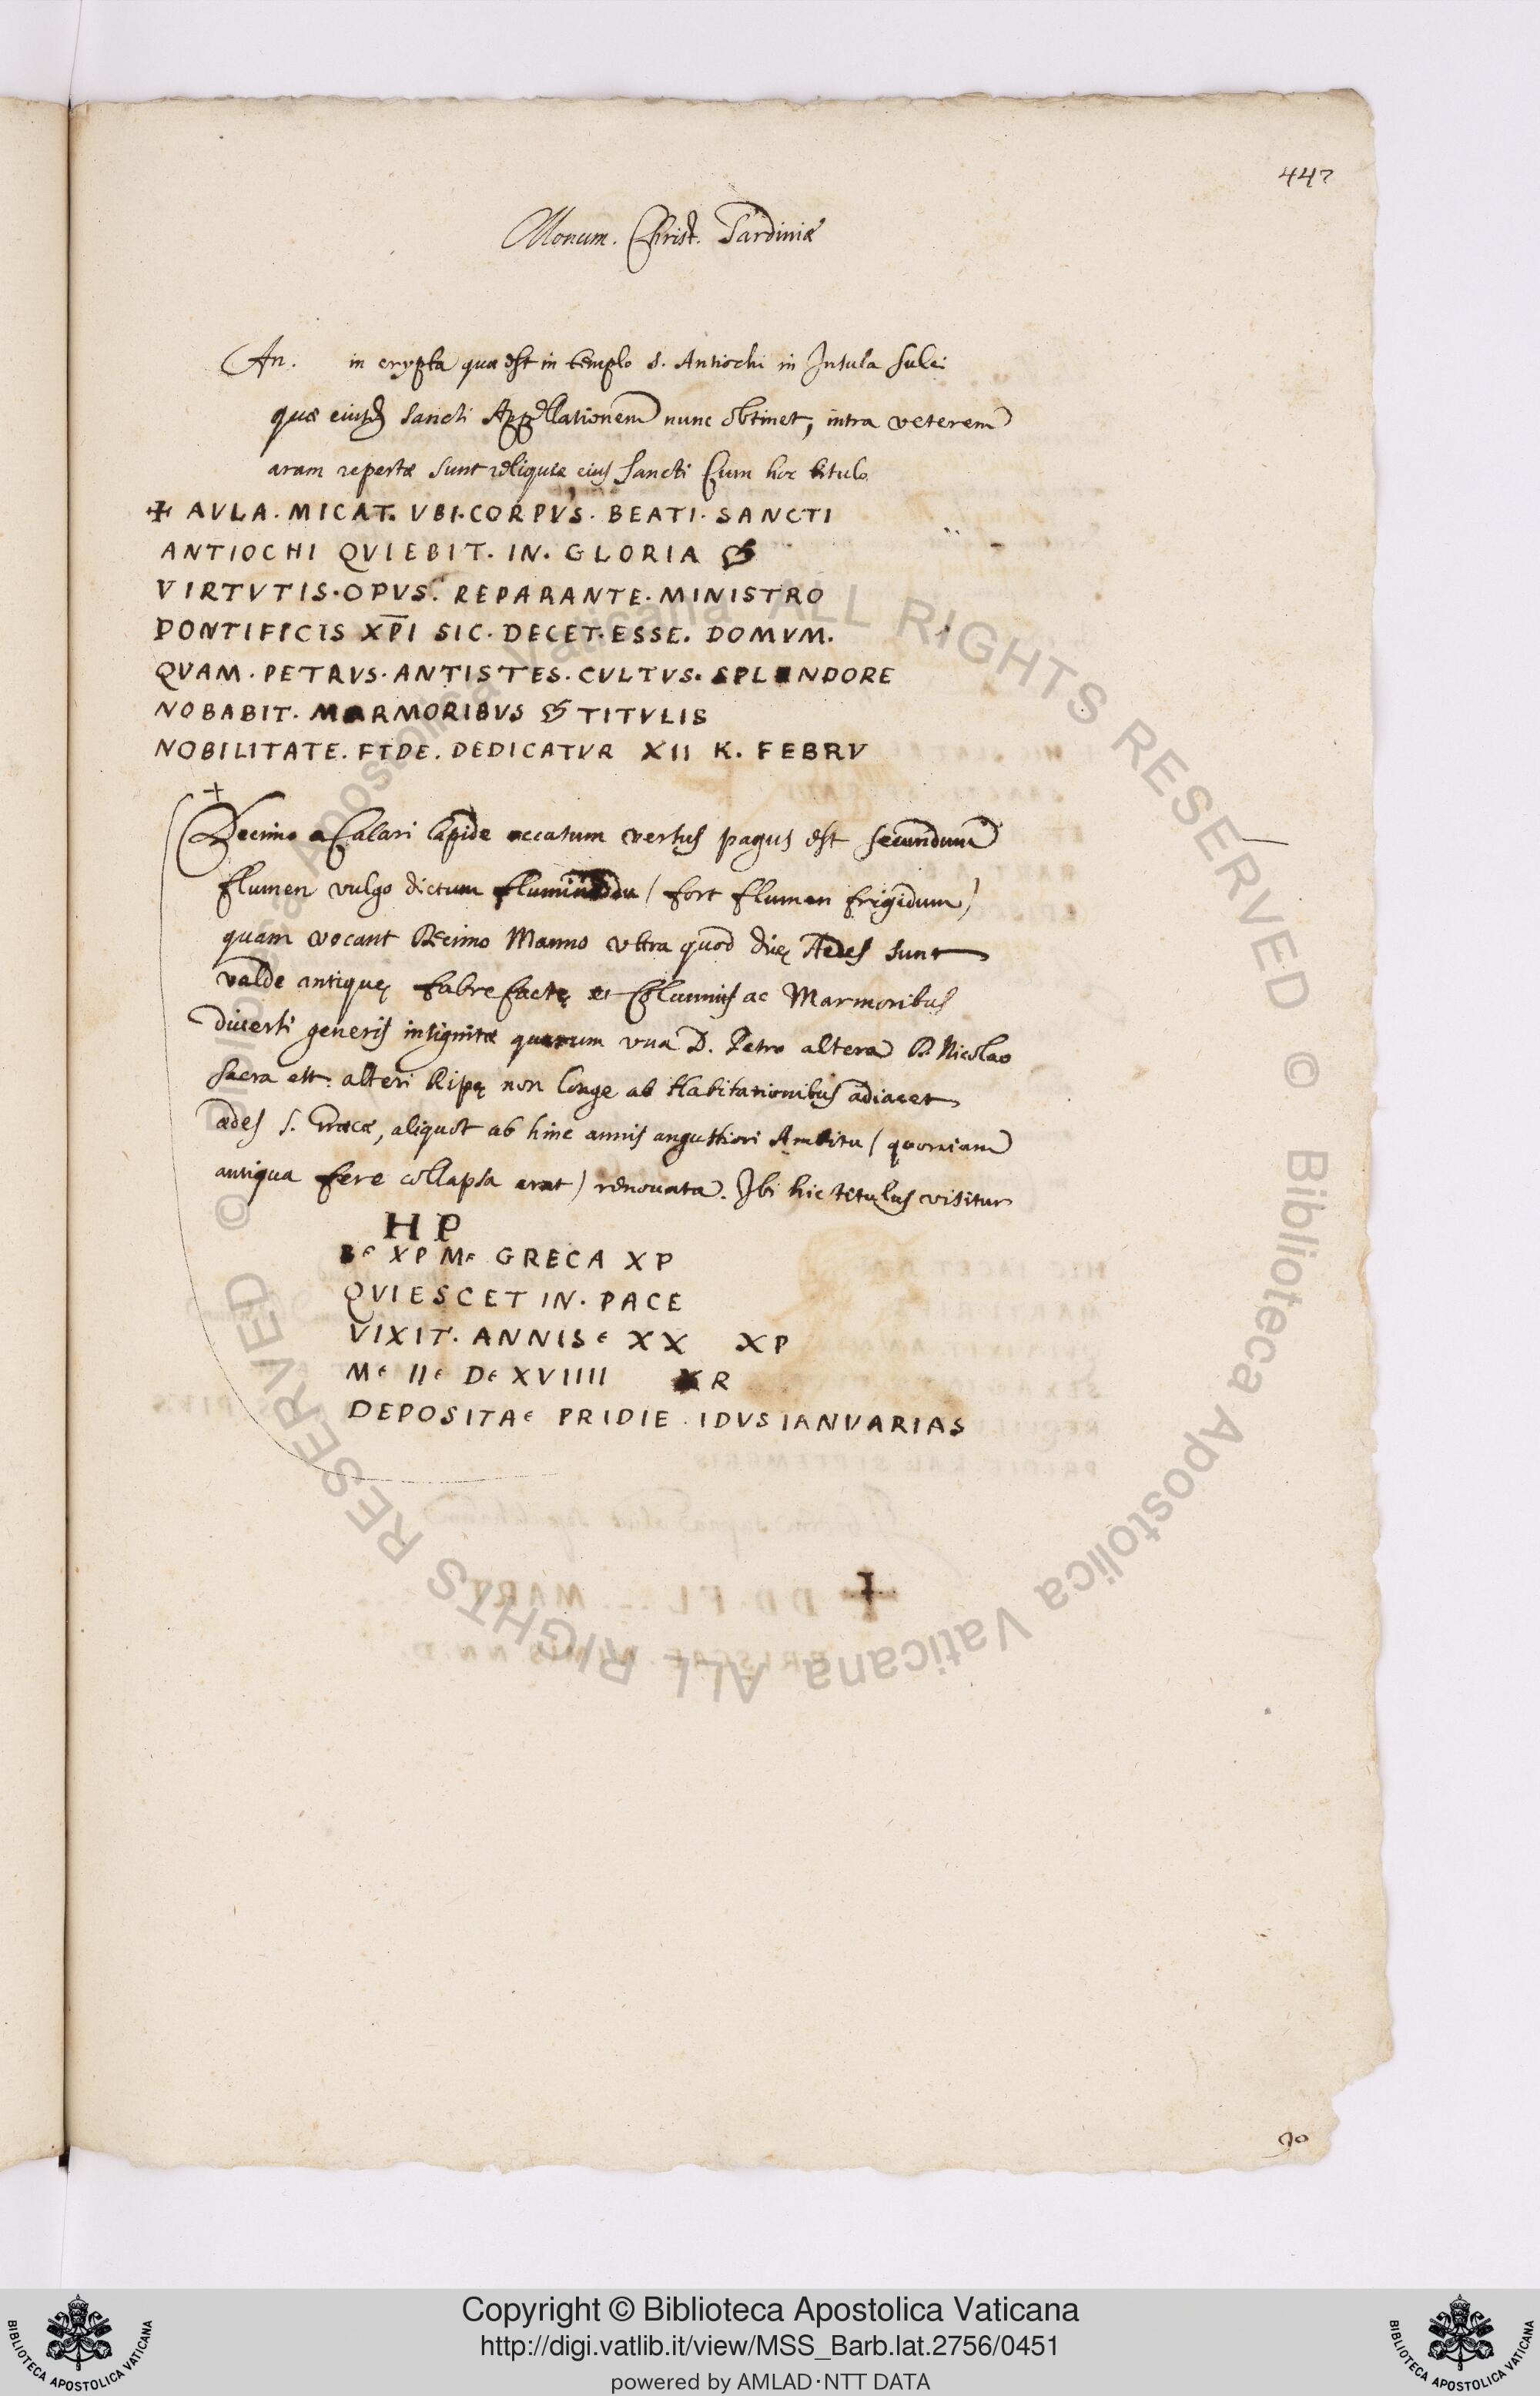 447
Monum. Christ. Sardiniæ
An. in crypta quæ est in templo S. Antiochi in Insula Sulci
quæ eiusd sancti Appellationem nunc obtinet, intra veterem
aram repertæ sunt reliquiæ eius sancti cum hoc titulo
✠ AVLA . MICAT. VBI . CORPVS . BEATI . SANCTI
ANTIOCHI QVIEBIT . IN . GLORIA
VIRTVTIS . OPVS . REPARANTE . MINISTRO
PONTIFICIS XP̅I SIC . DECET . ESSE . DOMVM .
QVAM . PETRVS . ANTISTES . CVLTVS . SPLENDORE
NOBABIT . MARMORIBVS TITVLIS
NOBILITATE . FIDE . DEDICATVR XII K . FEBRV
+
Decimo a Calari lapide occatum versus pagus est secundum
flumen vulgo dictum (fort flumen frigidum)
quam vocant Decimo Manno vltra quod duę Aedes sunt
valde antiquę fabrefactę et Columnis ac Marmoribus
diuersi generis insignitæ quarum vna D. Petro altera D. Nicolao
sacra est. alteri Ripę non longe ab Habitationibus adiacet
ædes S. Græcæ, aliquot ab hinc annis angustiori Ambitu (quoniam
antiqua fere collapsa erat) renouata. Ibi hic titulus visitur
H P
B XP M GRECA XP
QVIESCET IN . PACE
VIXIT . ANNIS XX XP
M II D XVIIII XR
DEPOSITA PRIDIE . IDVS IANVARIAS
90
© Biblioteca Apostolica Vaticana ALL RIGHTS RESERVED © Biblioteca Apostolica Vaticana ALL RIGHTS RESERVED
Copyright © Biblioteca Apostolica Vaticana
http://digi.vatlib.it/view/MSS_Barb.lat.2756/0451
powered by AMLAD·NTT DATA
BIBLIOTECA APOSTOLICA VATICANA
BIBLIOTECA APOSTOLICA VATICANA